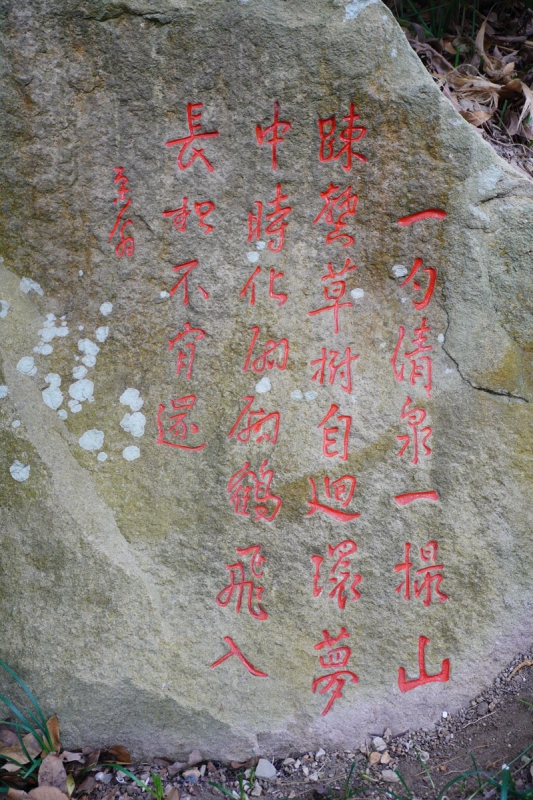 一勺清泉一撮山
踈草樹自迴環夢
中時化翩翩鶴飛入
長松不肯還